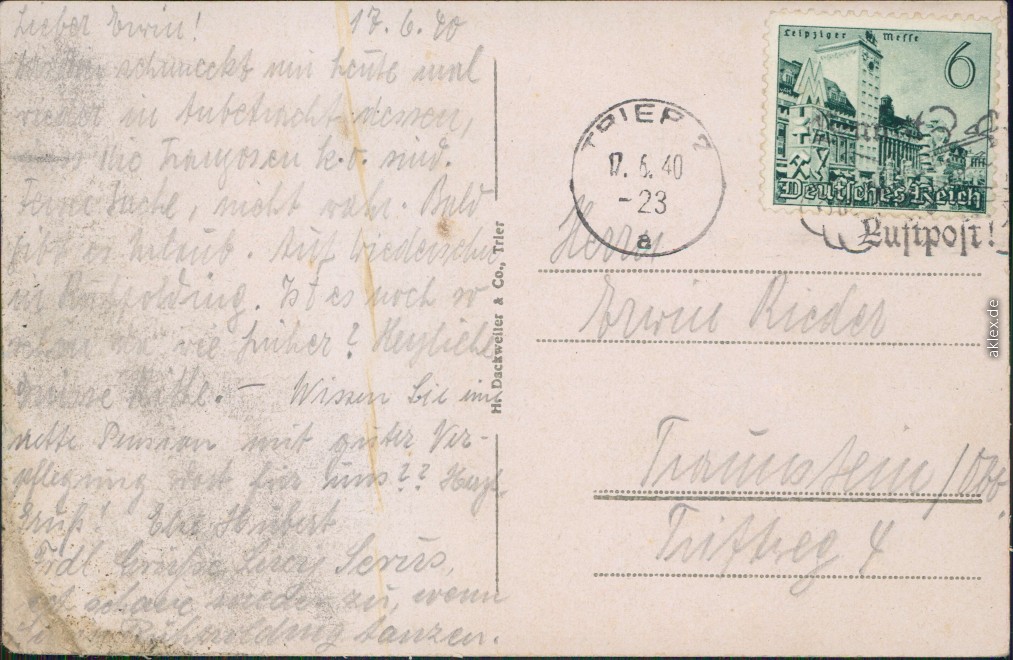 Lieber Erwin! 17.6.40
schmeckt mir heute mal
wieder in Anbetracht dessen,
die Franzosen k.o. sind.
nicht wahr. Bald
gibt es Urlaub. Auf Wiedersehn
in Ruhpolding. Ist es noch so
wie früher? Herzliche
Grüsse - Wissen Sie eine
nette Pension mit guter Ver-
pflegung dort für uns?? Herzl.
Gruß! Hubert
Grüße Servus,
schaue wieder zu, wenn
Ruhpolding tanzen.
H. Dackweiler & Co., Trier
TRIER 2
17.6.40
-23
a
Leipziger Messe
6
Deutsches Reich
Luftpost!
Herrn
Erwin Rieder
Traunstein/Obb.
Triftweg 4
aklex.de